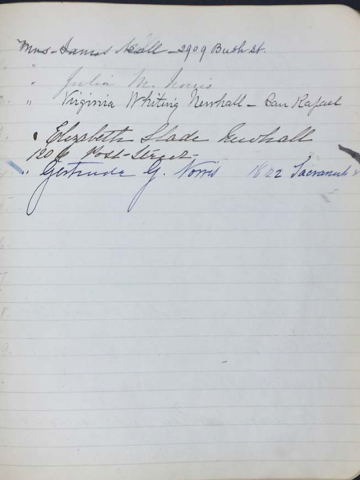 Mrs - James Neall - 2909 Bush St.
" Julia M. Norris
" Virginia Whiting Newhall - San Rafael
" Elizabeth Slade Newhall
1206 Post-Street -
" Gertrude G. Norris 1822 Sacramento